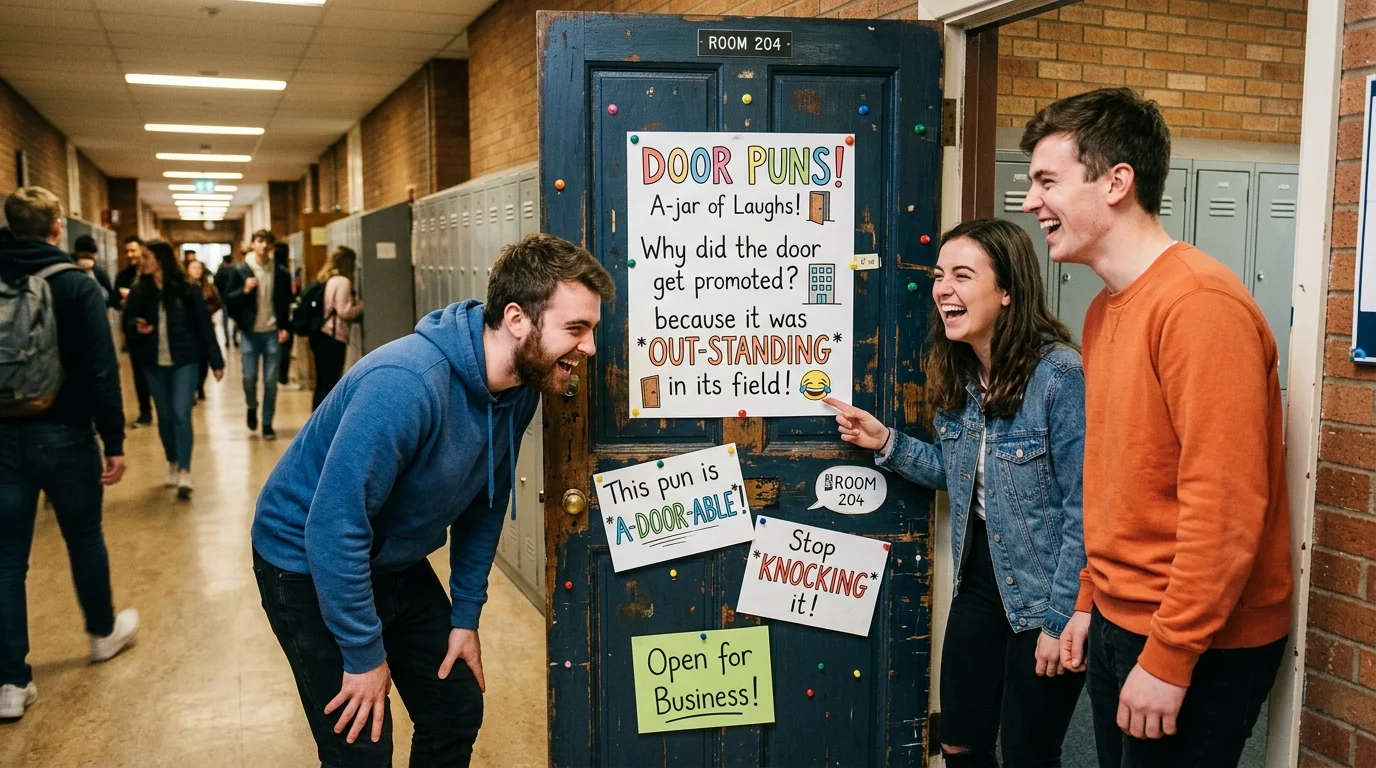 ROOM 204
DOOR PUNS!
A-jar of Laughs!
Why did the door
get promoted?
because it was
*OUT-STANDING*
in its field!
This pun is
*A-DOOR-ABLE*!
ROOM
204
Stop
*KNOCKING*
it!
Open for
Business!